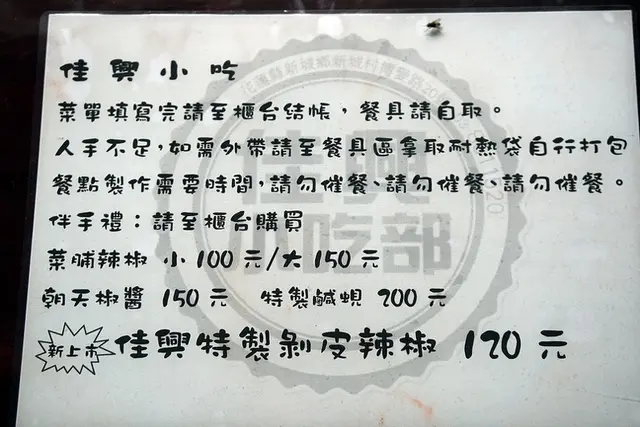 佳興小吃
菜單填寫完請至櫃台結帳，餐具請自取。
人手不足，如需外帶請至餐具區拿取耐熱袋自行打包
餐點製作需要時間，請勿催餐、請勿催餐、請勿催餐。
伴手禮：請至櫃台購買
菜脯辣椒 小 100 元/大 150 元
朝天椒醬 150 元 特製鹹蜆 200 元
新上市 佳興特製剝皮辣椒 120 元
花蓮縣新城鄉新城村博愛路20
佳興
小吃部